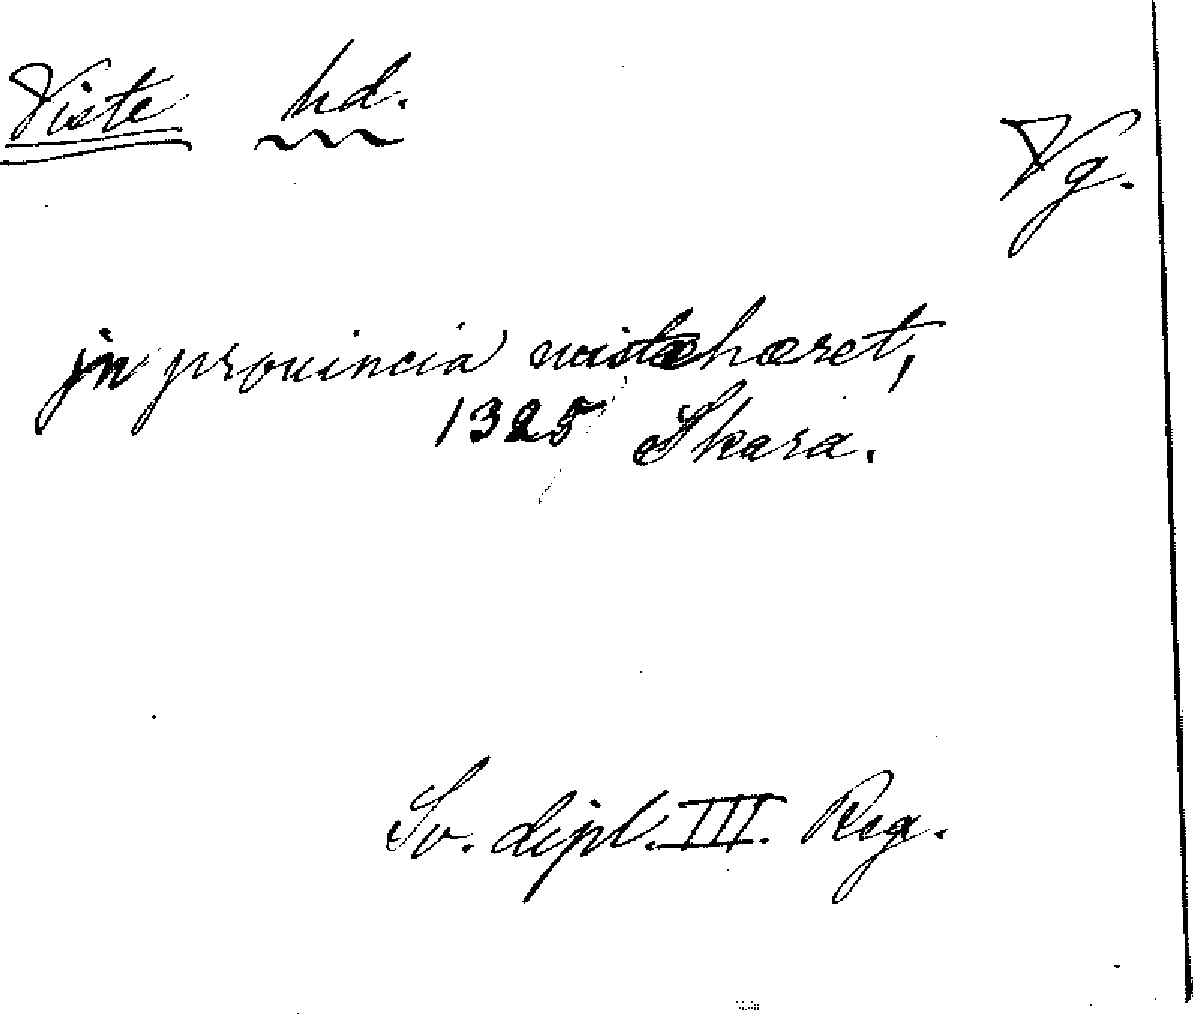 Viste hd.
Vg.
jn prouincia wistæhæret,
1325 Skara.
Sv. dipl. III. Reg.